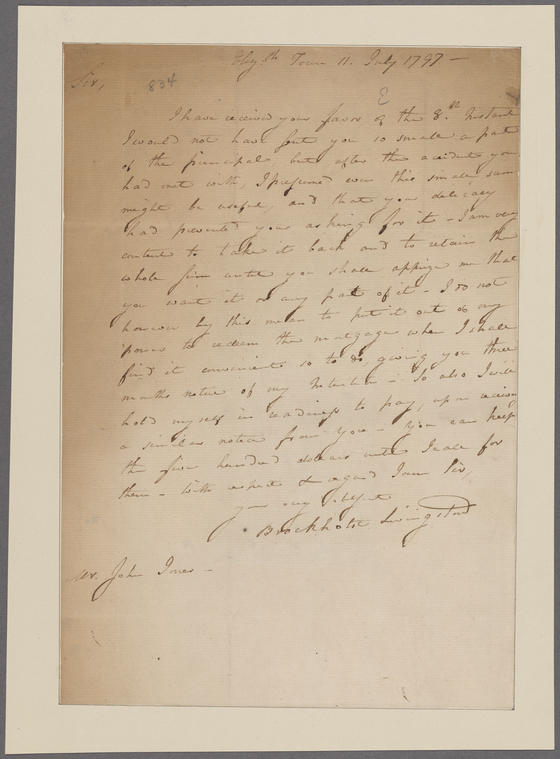 Eliz.th Town 11. July 1797 —
Sir,
834
I have received your favor of the 8.th Instant
I would not have sent you so small a part
of the principal, but after the accident you
had met with, I presumed even this small sum
might be useful, and that your delicacy
had prevented your asking for it — I am very
content to take it back and to retain the
whole sum until you shall apprize me that
you want it or any part of it — I do not
however by this mean to put it out of my
power to redeem the mortgage when I shall
find it convenient so to do giving you three
months notice of my Intention — So also I will
hold myself in readiness to pay, upon receiving
a similar notice from you — You can keep
the five hundred dollars until I call for
them — With respect & regard I am Sir,
your very
Brockholst Livingston
Mr. John Jones —